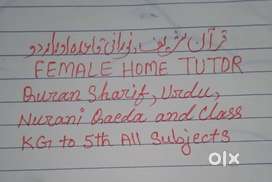 قرآن شریف، نورانی قاعدہ اور اردو
FEMALE HOME TUTOR
Quran Sharif, Urdu,
Nurani Qaeda and Class
KG to 5th All Subjects
olx